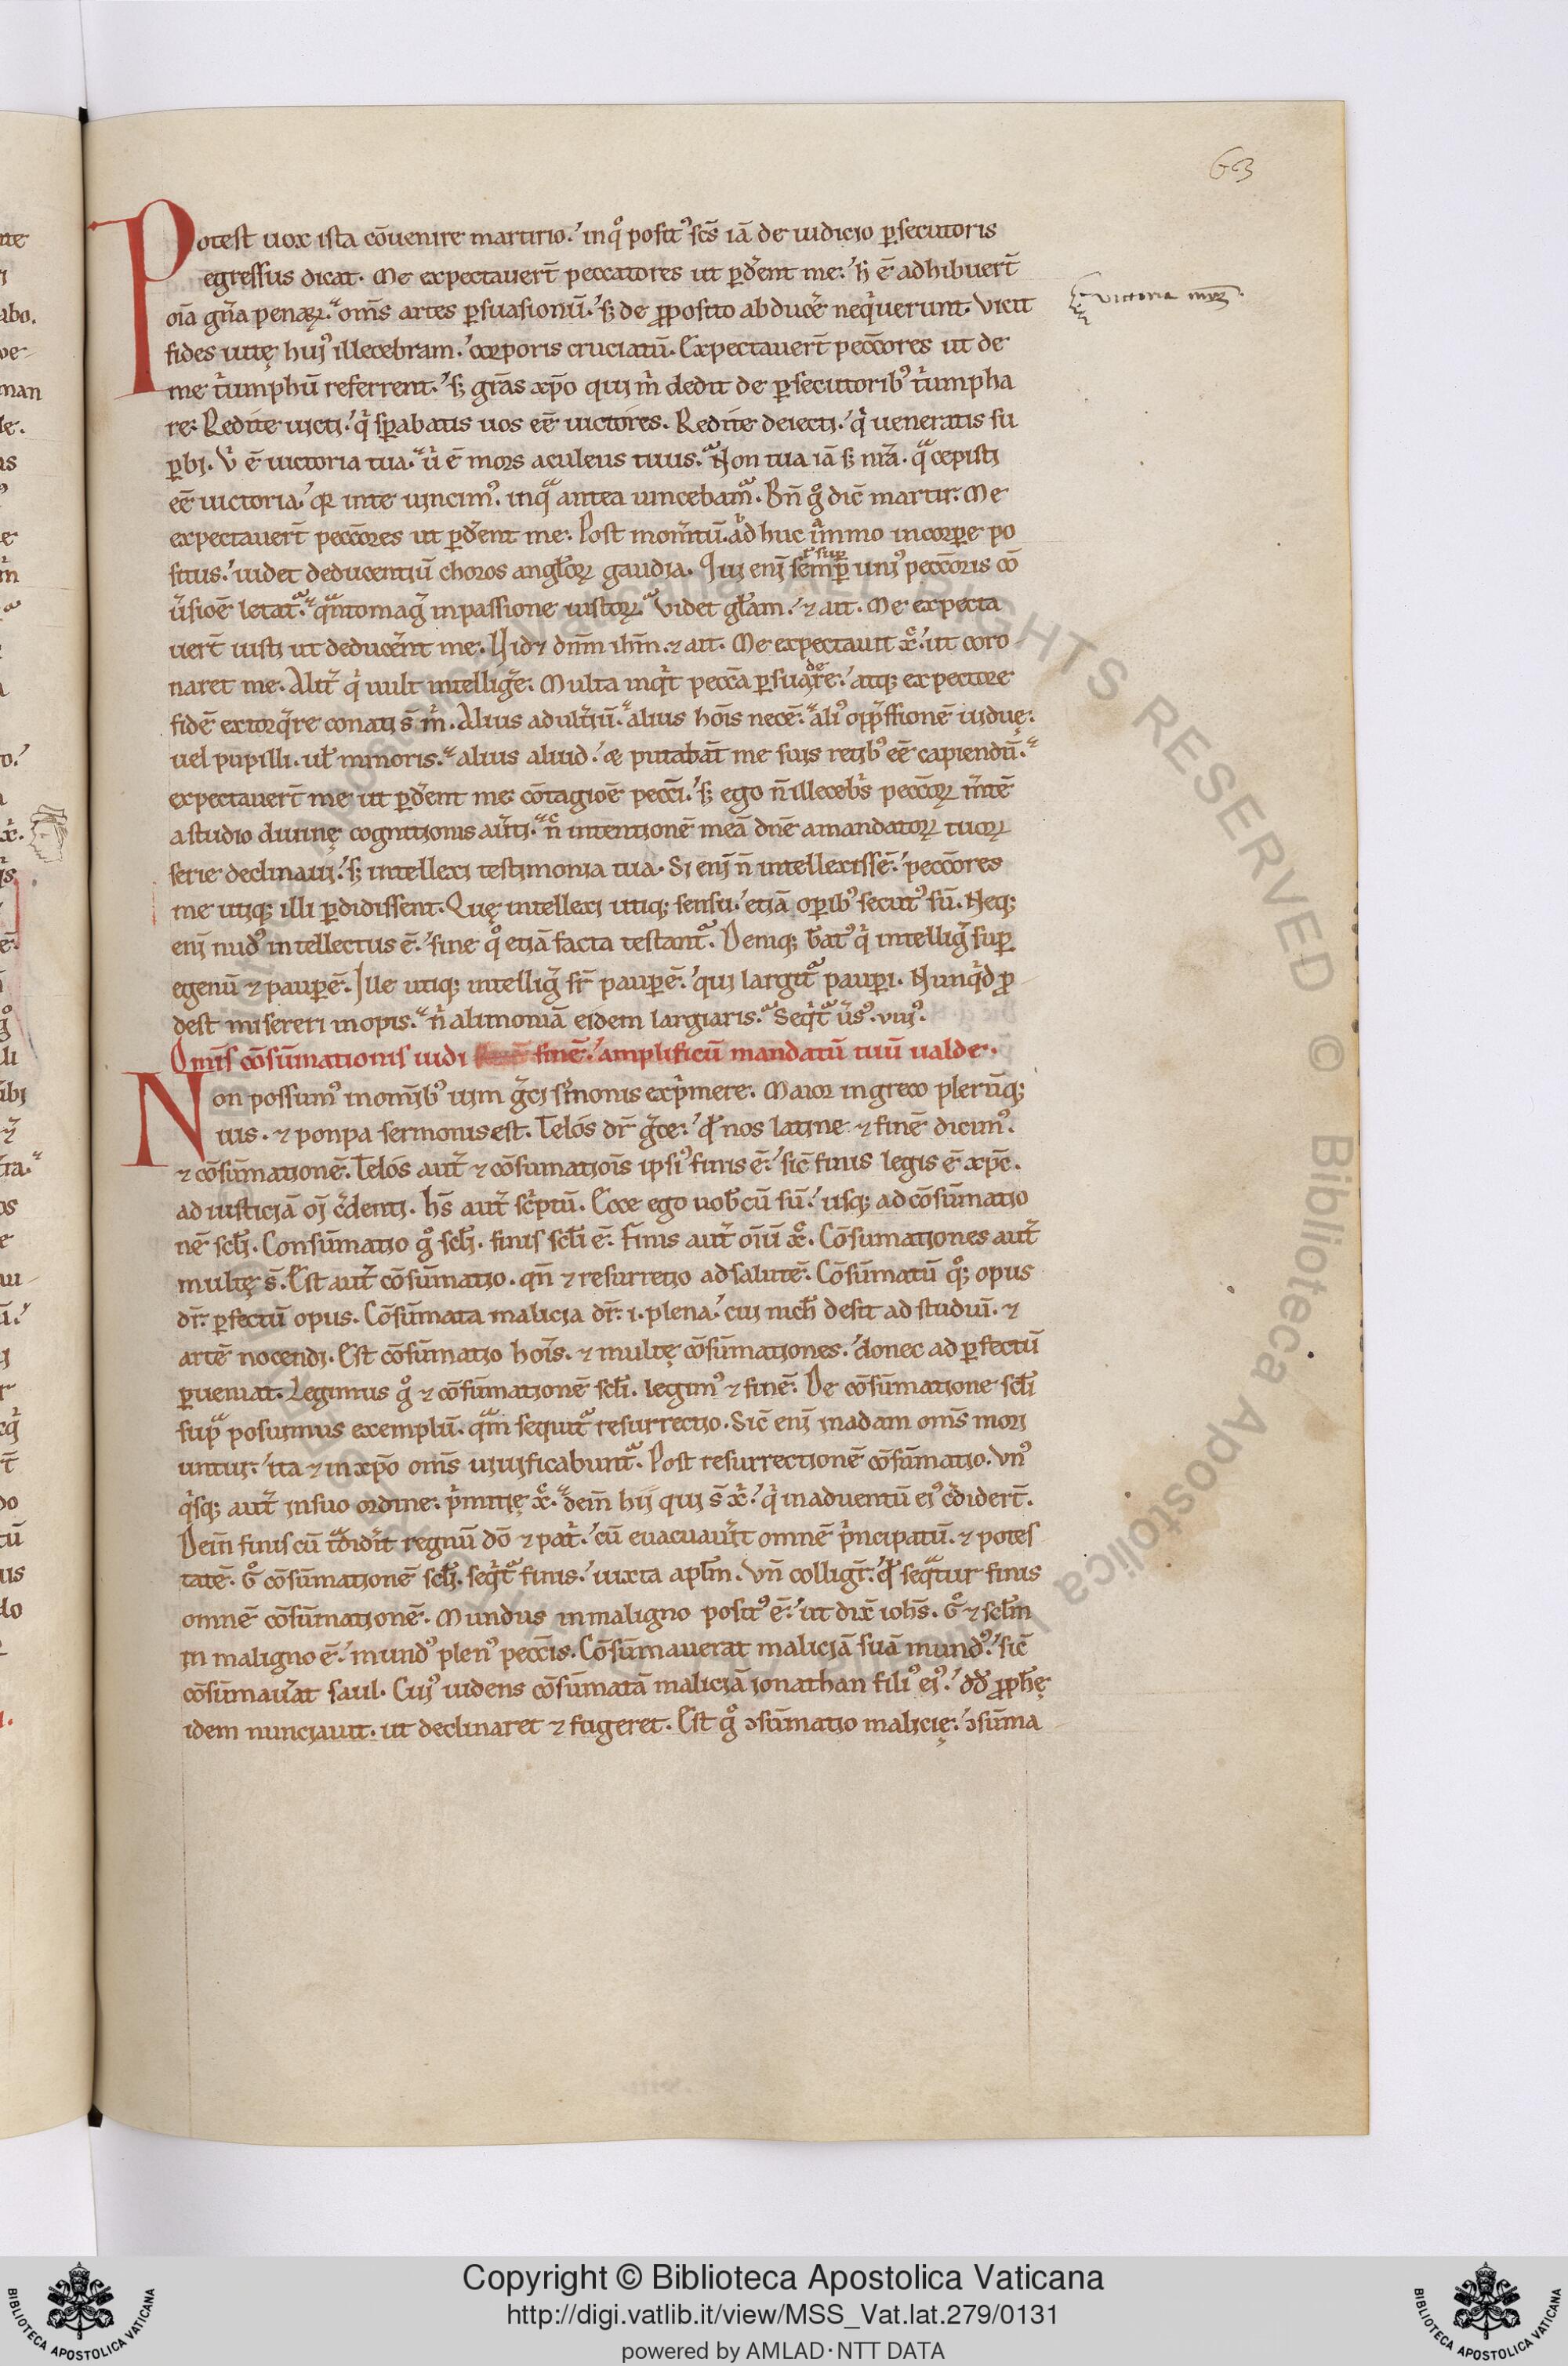 63
Potest uox ista cōuenire martirio. inq̊ posit᷒ sc̄s iā de iudicio p̱secutoris
egressus dicat. Me expectauert̄ peccatores ut p̱derent me. h̄ ē adhibuert̄
oīa gn̄a penaꝝ. om̄s artes p̱suasionū. sꝫ de ꝓposito abducēr neq̇uerunt. Vicit
fides uitę hui᷒ illecebram. corporis cruciatū. Expectauert̄ pecc̄ores ut de
me triumphū referrent. sꝫ gr̄as xp̄o qui m̄ dedit de p̱secutorib᷒ triumpha
re. Redite uicti. q̇ sp̱abatis uos eē uictores. Redite deiecti. q̇ ueneratis su
p̱bi. Vͥ ē uictoria tua. uͥ ē mors aculeus tuus. Non tua iā sꝫ nr̄a. qͣ cepisti
eē uictoria. qr inte uincim᷒. inqͣ antea uincebam̄. Bn̄ g̊ dic̄ martir. Me
expectauert̄ pecc̄ores ut p̱derent me. Post mom̄tū. ad huc immo incorpore po
situs. uidet deducentiū choros anglꝝ gaudia. Qui eni semp̱ r̄ sup̱ uni᷒ pecc̄oris cō
u̓sioē letat̄. qͣntomag̓ inpassione iustoꝝ. Videt gl̄am. ⁊ ait. Me expecta
uert̄ iusti ut deducer̄nt me. Uidꝫ dn̄m ih̄m. ⁊ ait. Me expectauit xc̄. ut coro
naret me. Alit̓ q̇ uult intellig̓e. Multa inq̇t pecc̄a p̱suadere. atqꝫ expectore
fidē extorq̓re conati s̄ m̓. Alius adult̓iū. alius hoīs necē. ali᷒ opp̓ssionē uiduę.
uel pupilli. ul̄ minoris. alius aliud. ⁊ putabāt me suis retib᷒ eē capiendū.
expectauert̄ me ut p̱derent me cōtagioē pecc̄i. sꝫ ego n̄ illecebris pecc̄oꝝ m̄tē
a studio diuinę cognitionis au̓ti. n̄ intentionē meā dn̄e amandatoꝝ tuoꝝ
serie declinaui. sꝫ intellexi testimonia tua. Si eni n̄ intellexissē. pecc̄ores
me utiqꝫ illi p̱didissent. Quę intellexi utiqꝫ sensu. etiā op̱ib᷒ secut᷒ sū. Neqꝫ
eni nud᷒ intellectus ē. sine q̊ etiā facta testant̄. Deniqꝫ b̄at᷒ q̇ intellig̓ sup̱
egenū ⁊ paup̱ē. Ille utiqꝫ intellig̓ sr̄ paup̱ē. qui largit̄ paup̱i. Nunq̇d ꝓ
dest misereri inopis. n̓ alimoniā eidem largiaris. Seq̇t̄ u̓s᷒. viii᷒.
Omīs cōsūmationis uidi finē. amplificū mandatū tuū ualde.
Non possum᷒ inomīb᷒ uim g̓ci s̓monis exp̓mere. Maior ingreco plerūqꝫ
uis. ⁊ ponpa sermonis est. Telós dr̄ g̓ce. qd̄ nos latine ⁊ finē dicim᷒.
⁊ cōsūmationē. Telós aut̄ ⁊ cōsumatioīs ipsi᷒ finis ē. sic̄ finis legis ē xp̄c.
ad iusticiā oi c̓denti. hs̄ aut̄ sc̓ptū. Ecce ego uob̄cū sū. usqꝫ ad cōsūmatio
nē scl̄i. Consūmatio g̊ scl̄i. finis scl̄i ē. Finis aut̄ oīū xc̄. Cōsumationes aut̄
multę s̄. Est aut̄ cōsūmatio. qn̄ ⁊ resurretio ad salutē. Cōsūmatū q᷒qꝫ opus
dr̄. p̱fectū opus. Cōsūmata malicia dr̄. i. plena. cui nich̄ desit ad studiū. ⁊
artē nocendi. Est cōsūmatio hoīs. ⁊ multę cōsūmationes. donec ad p̱fectū
p̱ueniat. Legimus g̊ ⁊ cōsūmationē scl̄i. legim᷒ ⁊ finē. De cōsūmatione scl̄i
supͣ posuimus exemplū. qͣm sequit̄ resurrectio. Sic̄ eni inadam om̄s mori
untur. ita ⁊ inxp̄o om̄s uiuificabunt̄. Post resurrectionē cōsūmatio. Vn᷒
q̇sqꝫ aut̄ insuo ordine. p̓mitię xc̄. dein̄ hii qui s̄ xi̓. q̇ inaduentū ei᷒ c̓didert̄.
Dein̄ finis cū tͣdid̓it regnū dō ⁊ pat̓. cū euacuau̓it omnē p̓ncipatū. ⁊ potes
tatē. G̊ cōsūmationē scl̄i. seq̇t̄ finis. iuxta apl̄m. Vn̄ colligit̄. qd̄ seqͣtur finis
omnē cōsūmationē. Mundus inmaligno posit᷒ ē. ut dix̄ ioh̄s. G̊ ⁊ scl̄m
in maligno ē. mund᷒ plen᷒ pecc̄is. Cōsūmauerat maliciā suā mund᷒. sic̄
cōsūmau̓at saul. Cui᷒ uidens cōsūmatā maliciā ionathan fili᷒ ei᷒. dd̄ ꝓph̄ę
idem nunciauit. ut declinaret ⁊ fugeret. Est g̊ ɔsūmatio malicię. ɔsūma
victoria
Copyright © Biblioteca Apostolica Vaticana
http://digi.vatlib.it/view/MSS_Vat.lat.279/0131
powered by AMLAD·NTT DATA
BIBLIOTECA APOSTOLICA VATICANA
BIBLIOTECA APOSTOLICA VATICANA